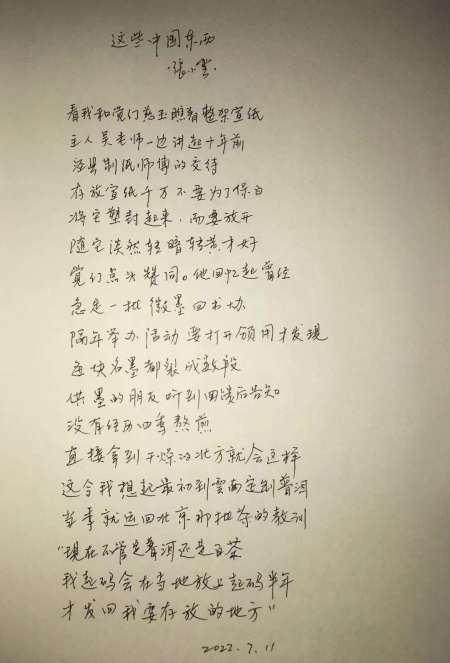 这些中国东西
張小雲
看我和 着整架宣纸
主人吴老师一边讲起十年前
泾县制纸师傅的交待
存放宣纸千万不要为了保白
将它塑封起来，而要放开
随它淡然轻暗转黄才好
们点头赞同。他回忆起曾经
急 一批徽墨回书
隔年举办活动要打开领用才发現
每块名墨都裂成数段
供墨的朋友听到回馈后告知
没有经历四季熬煎
直接拿到干燥的北方就会这样
这令我想起最初到雲南定制普洱
当季就运回北京那批茶的教训
“現在不管是普洱还是白茶
我起码会在当地放上起码半年
才发回我要存放的地方”
2022.7.11